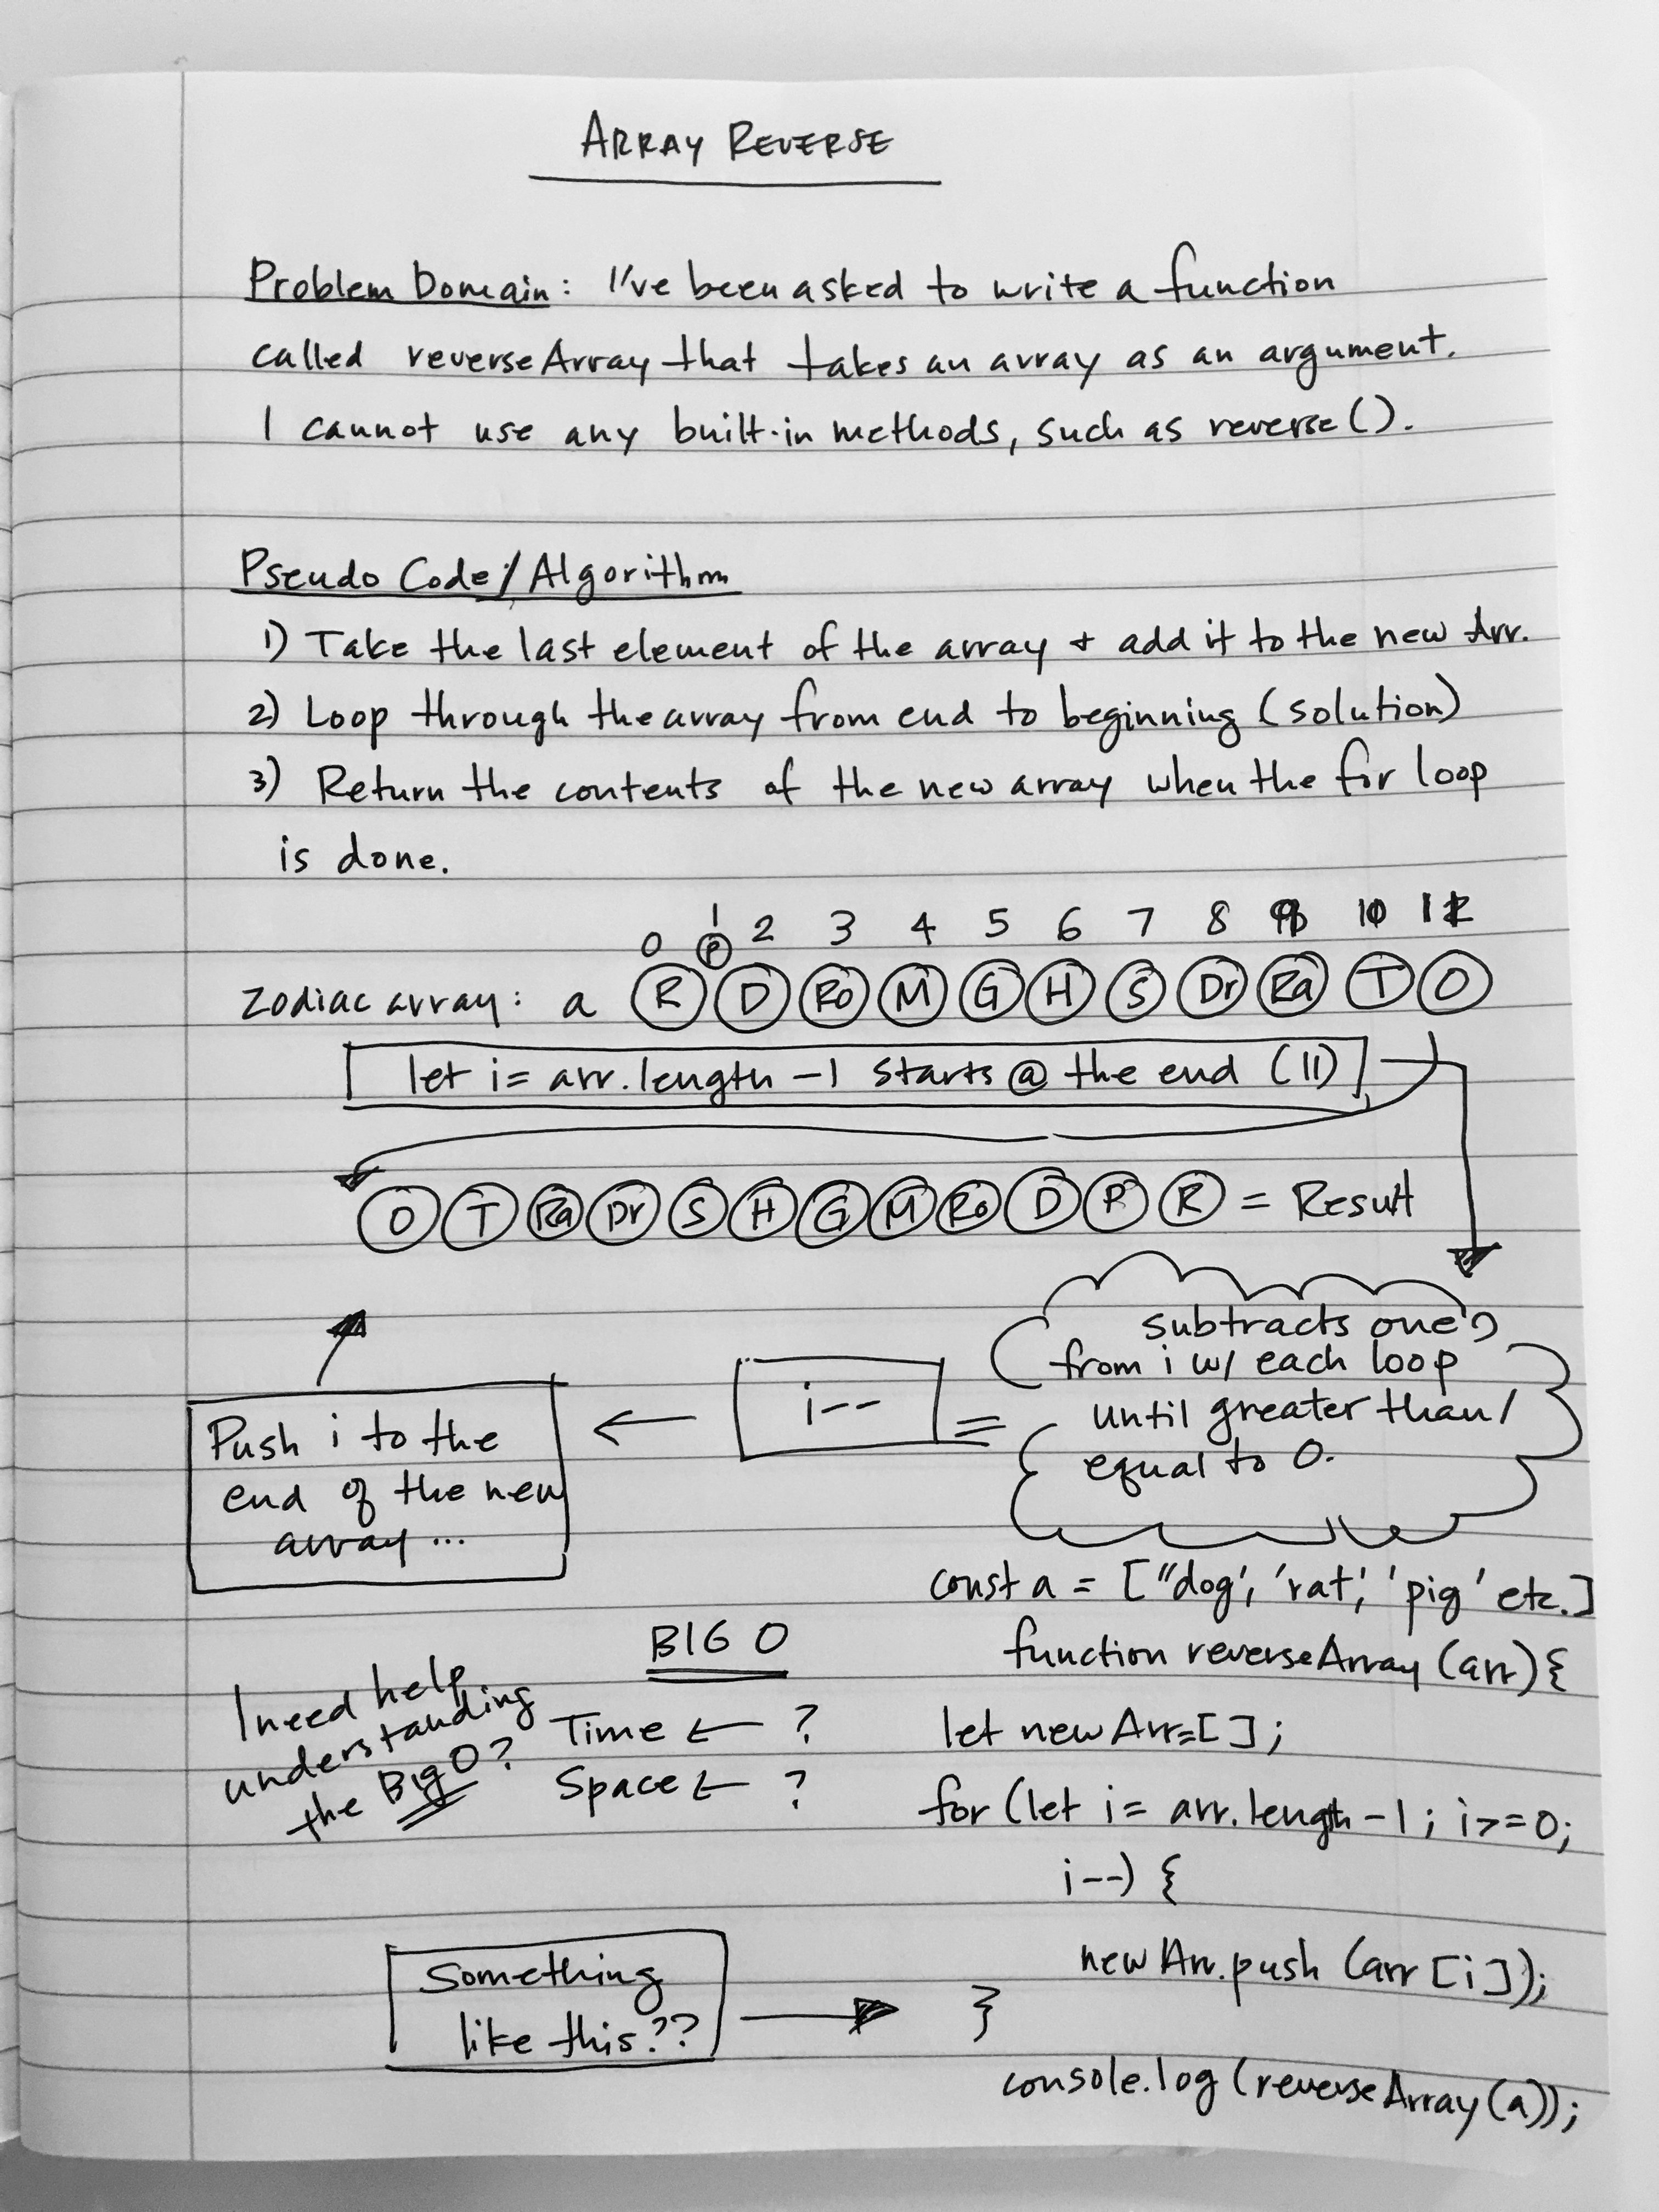 ARRAY REVERSE
Problem Domain: I've been asked to write a function
called reverseArray that takes an array as an argument.
I cannot use any built-in methods, such as reverse().
Pseudo Code/Algorithm
1) Take the last element of the array + add it to the new Arr.
2) Loop through the array from end to beginning (solution)
3) Return the contents of the new array when the for loop
is done.
0 1 2 3 4 5 6 7 8 9 10 11
P
Zodiac array: a R D Ro M G H S Dr Ra T O
let i = arr.length -1 starts @ the end (11)
O T Ra Dr S H G M Ro D P R = Result
subtracts one
from i w/ each loop
until greater than/
equal to 0.
i-- =
←
Push i to the
end of the new
array ...
const a = ["dog', 'rat', 'pig' etc.]
function reverseArray (arr) {
let newArr = [];
for (let i = arr.length -1; i >= 0;
i--) {
newArr.push (arr [i]);
}
console.log (reverseArray (a));
BIG O
Time ← ?
Space ← ?
I need help
understanding
the Big O?
Something
like this??